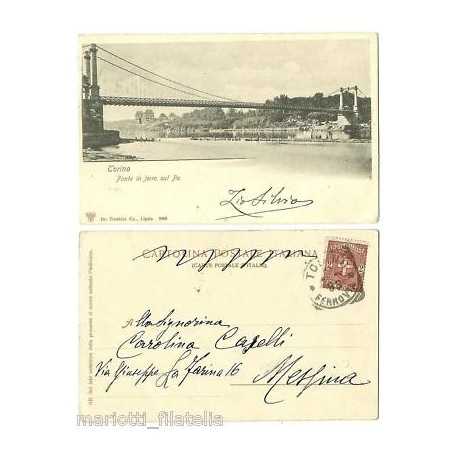 Torino
Ponte in ferro sul Po
Zio Silvio
Dr. Trenkler Co., Lipsia
CARTOLINA POSTALE ITALIANA
(CARTE POSTALE D'ITALIE)
TO
FERROV
Alla Signorina
Carolina Capelli
Via Giuseppe La Farina 16
Messina
mariotti_filatelia